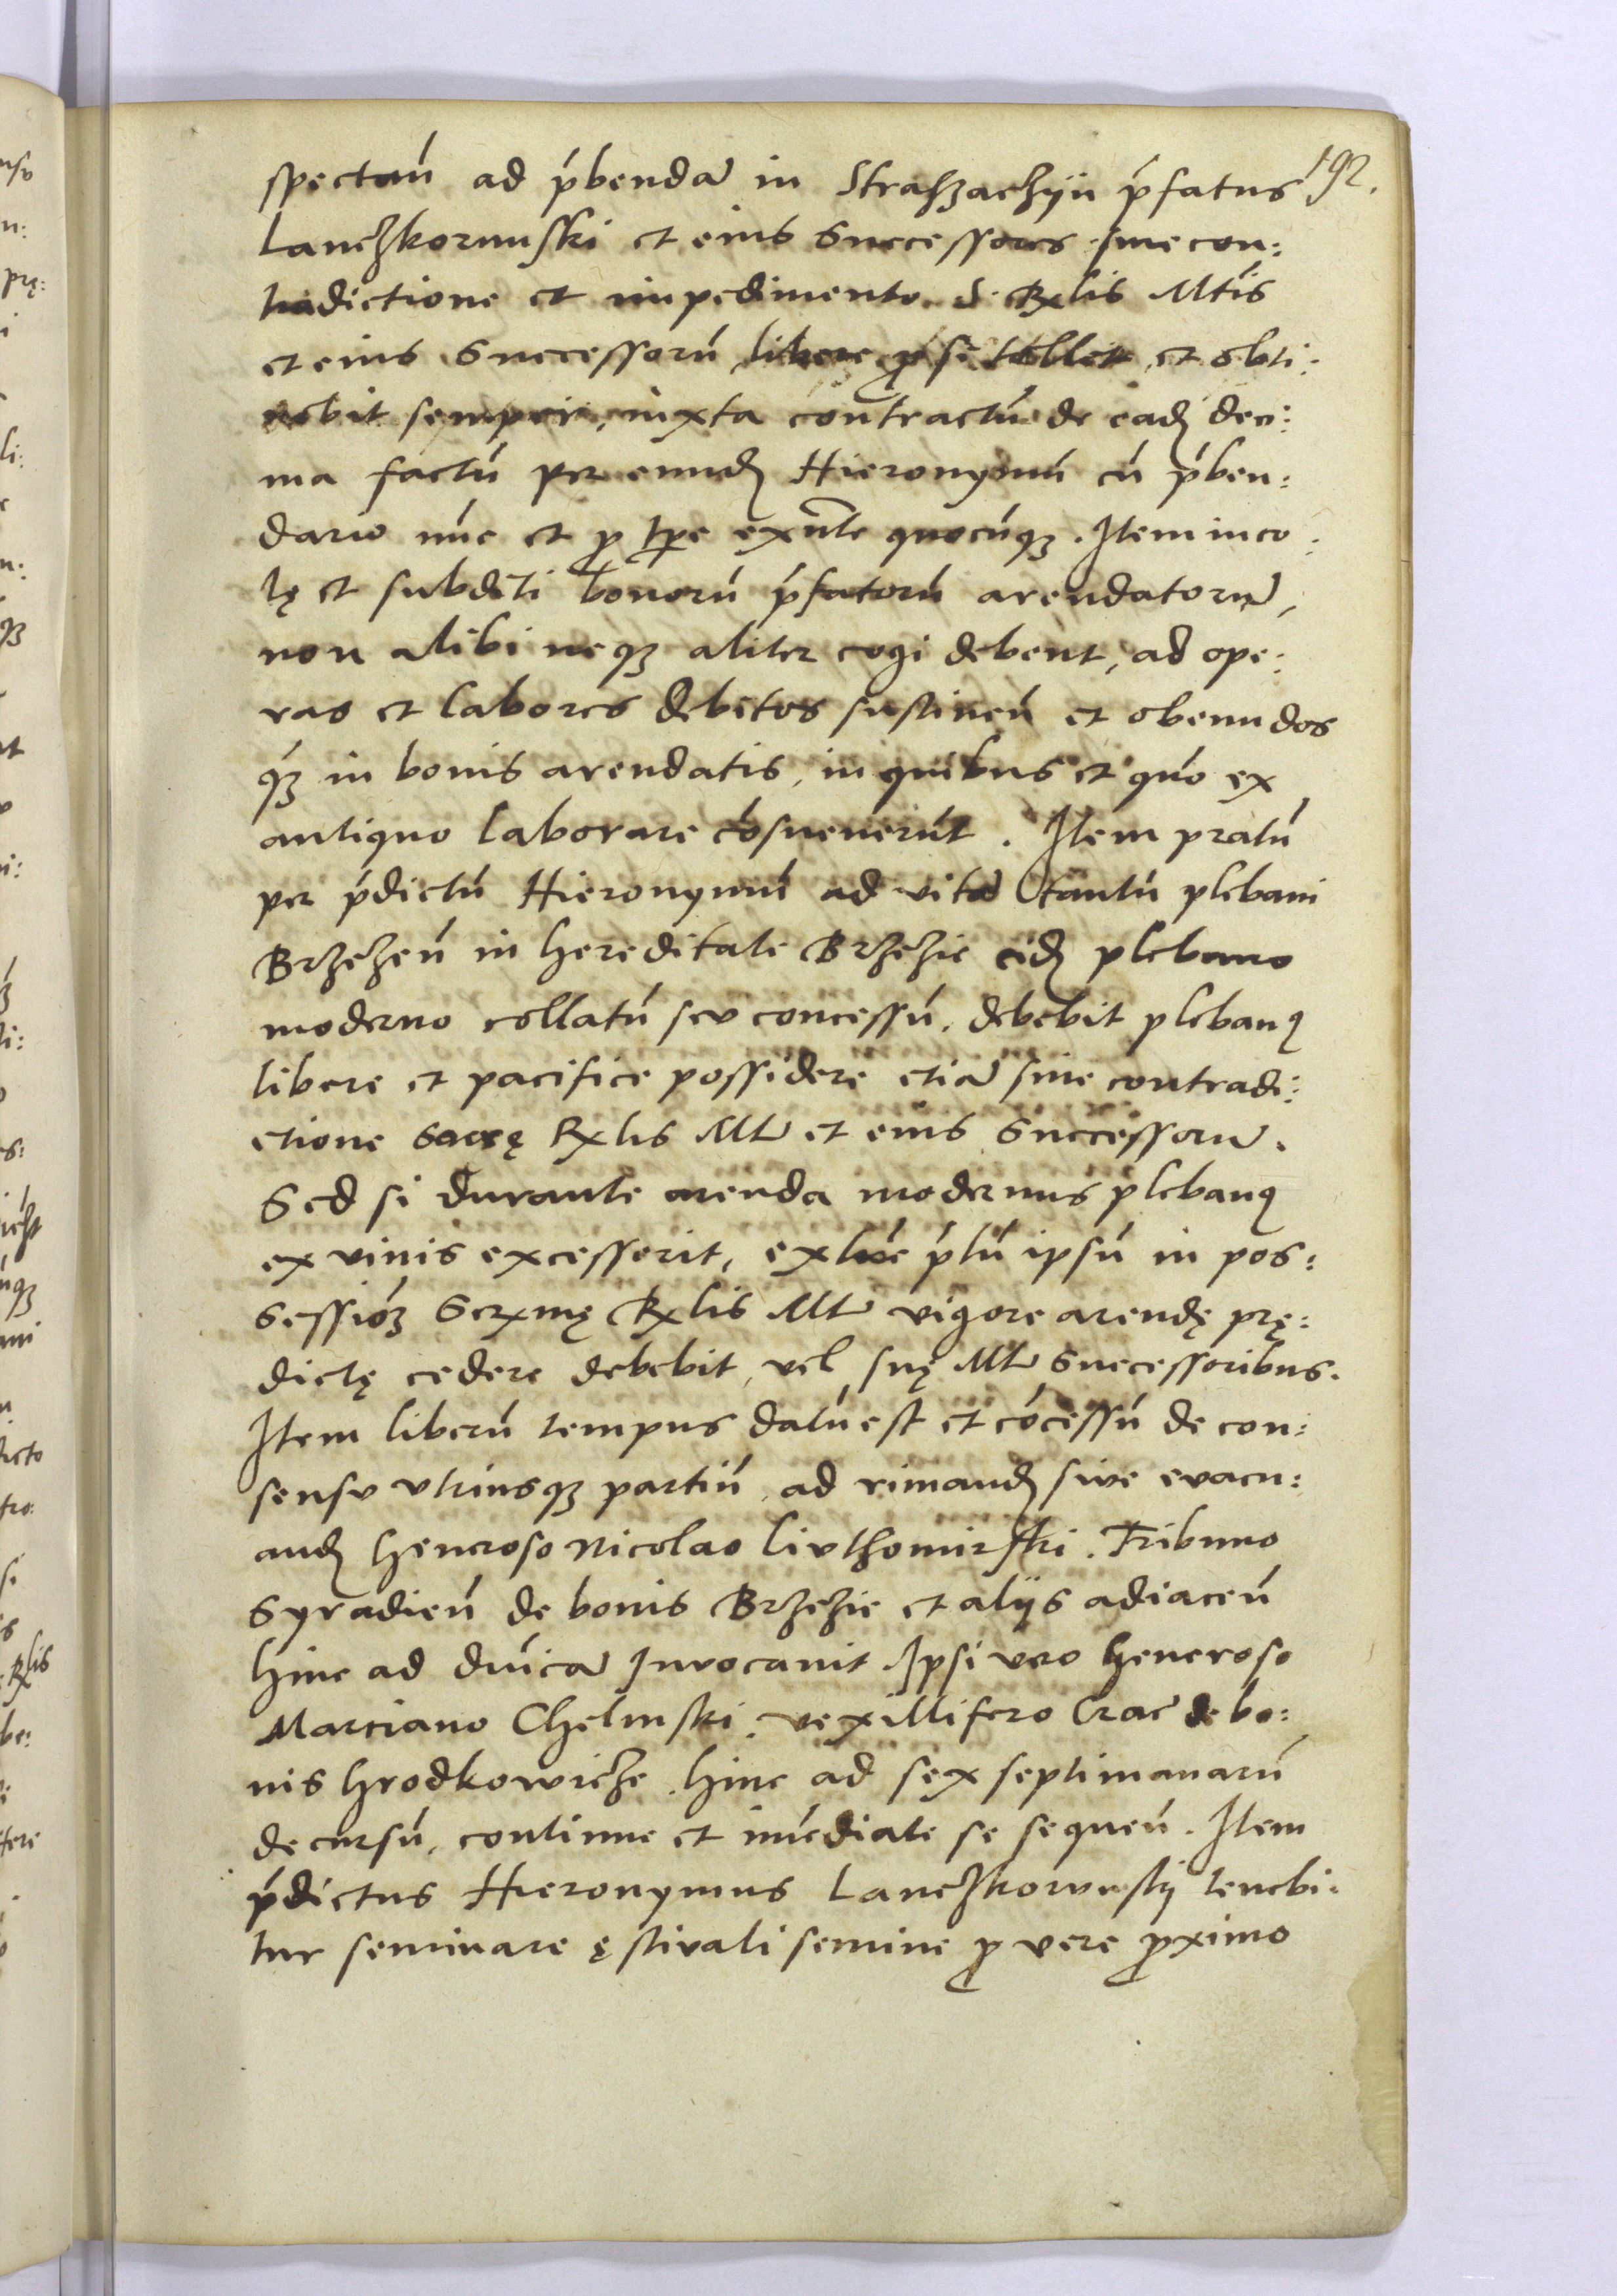 192.
spectań ad ṕbendā in Straszaczijn ṕfatus
Lanczkorunski et eius Successores sine con:
tradictione et impedimento S. Rχlis Mtis
et eius Successorū libere ꝓ se tollet et obti:
nebit semper, iuxta contractū de eadꝫ deci:
ma factū per eundꝫ Hieronymū cū ṕben:
dario nūc et ꝓ tp̄e exn̄te quocūqꝫ. Item inco:
lę et subditi bonorū ṕfatorū arendatorū,
non alibi neqꝫ aliter cogi debent, ad ope:
ras et labores debitos sustineń et obeundos
q́ꝫ in bonis arendatis, in quibus et quo ex
antiquo laborare cōsueverūt. Item pratū
per ṕdictū Hieronymū ad vitā tantū plebani
Brzezeń in hereditate Brzezie eidꝫ plebano
moderno collatū seu concessū, debebit plebanꝯ
libere et pacifice possidere etiā sine contradi:
ctione Sacrę Rχlis Mt̄ et eius Successorū.
Sed si durante arenda modernus plebanꝯ
ex vivis excesserit, extūc ṕtū ipsū in pos:
sessióꝫ Serχmę Rχlis Mt̄ vigore arendę prę:
dictę cedere debebit, vel suę Mt̄ Successoribus.
Item liberū tempus datū est et cōcessū de con:
sensu utriusqꝫ partiū, ad rimandꝫ sive evacu:
andꝫ Generoso Nicolao Liuthomirski. Tribuno
Syradień de bonis Brzezie et alijs adiaceń
hinc ad dn̄icā Invocavit. Ipsi vero Generoso
Marciano Chelmski, vexillifero Crac̄ de bo:
nis Grodkowicze. hinc ad sex septimanarū
decursū, continue et im̄ediate se sequeń. Item
ṕdictus Hieronymus Lanczkorunskij tenebi:
tur seminare ęstivali semine ꝓ vere ꝓximo